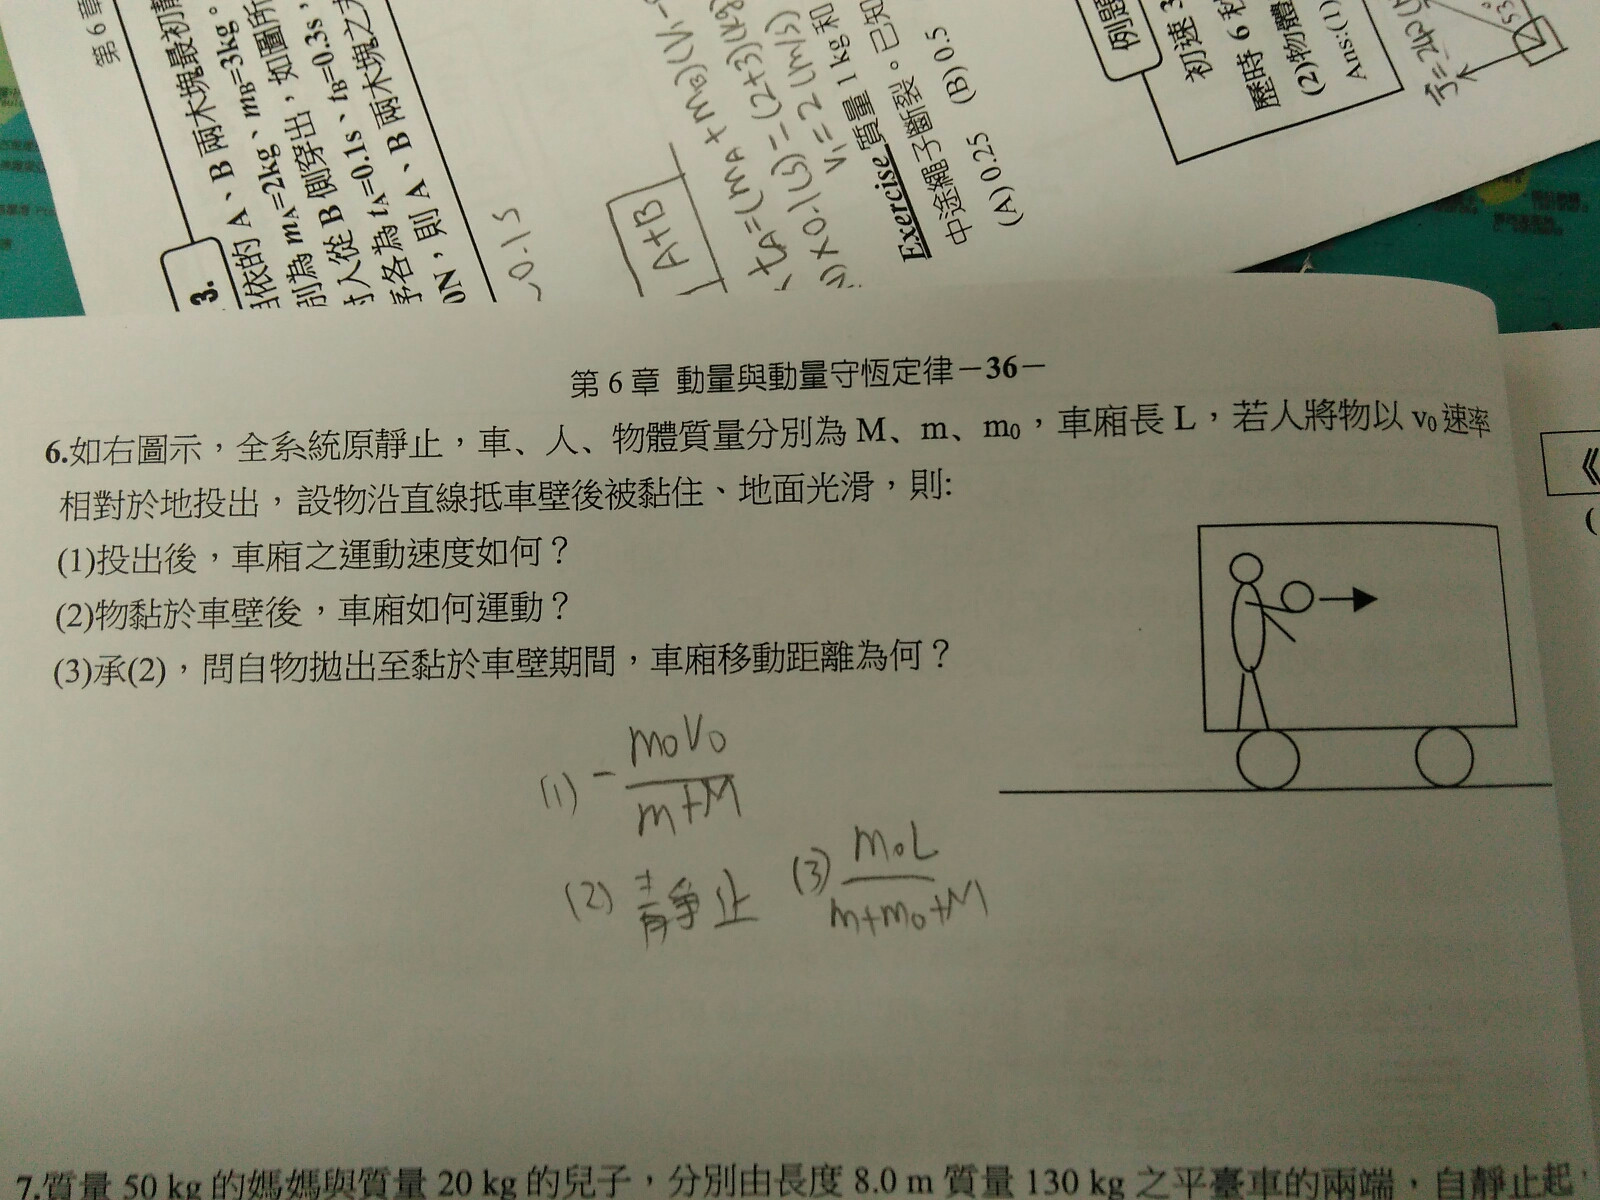 第6章
3.
A、B 兩木塊最初靜
相依的 A、B
別為 mA=2kg、mB=3kg。
從 B 側穿出，如圖所
各為 tA=0.1s、tB=0.3s，
0N，則 A、B 兩木塊之
0.1s
A+B
tA=(mA+mB)(V1-
)×0.1(s)=(2+3)(kg)
V1=2(m/s)
Exercise 質量 1 kg 和
中途繩子斷裂。已知
(A)0.25 (B)0.5
例題
初速 3
歷時 6 秒
(2)物體
Ans:(1)
53°
第 6 章 動量與動量守恆定律－36－
6.如右圖示，全系統原靜止，車、人、物體質量分別為 M、m、m0，車廂長 L，若人將物以 v0 速率
相對於地投出，設物沿直線抵車壁後被黏住、地面光滑，則:
(1)投出後，車廂之運動速度如何？
(2)物黏於車壁後，車廂如何運動？
(3)承(2)，問自物拋出至黏於車壁期間，車廂移動距離為何？
(1) - m0V0 / m+M
(2) 靜止 (3) m0L / m+m0+M
《
(
7.質量 50 kg 的媽媽與質量 20 kg 的兒子，分別由長度 8.0 m 質量 130 kg 之平臺車的兩端，自靜止起